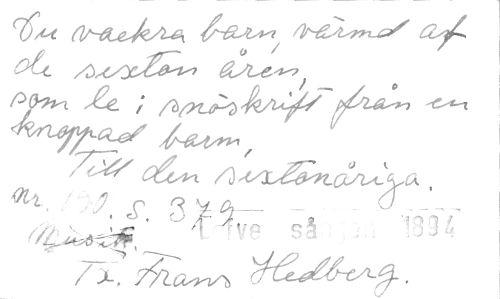 Du vackra barn, värmd af
de sexton åren,
som le i snöskrift från en
knoppad barm,
Till den sextonåriga.
nr. 190. s. 379
Musik. sången 1894
Tx. Frans Hedberg.